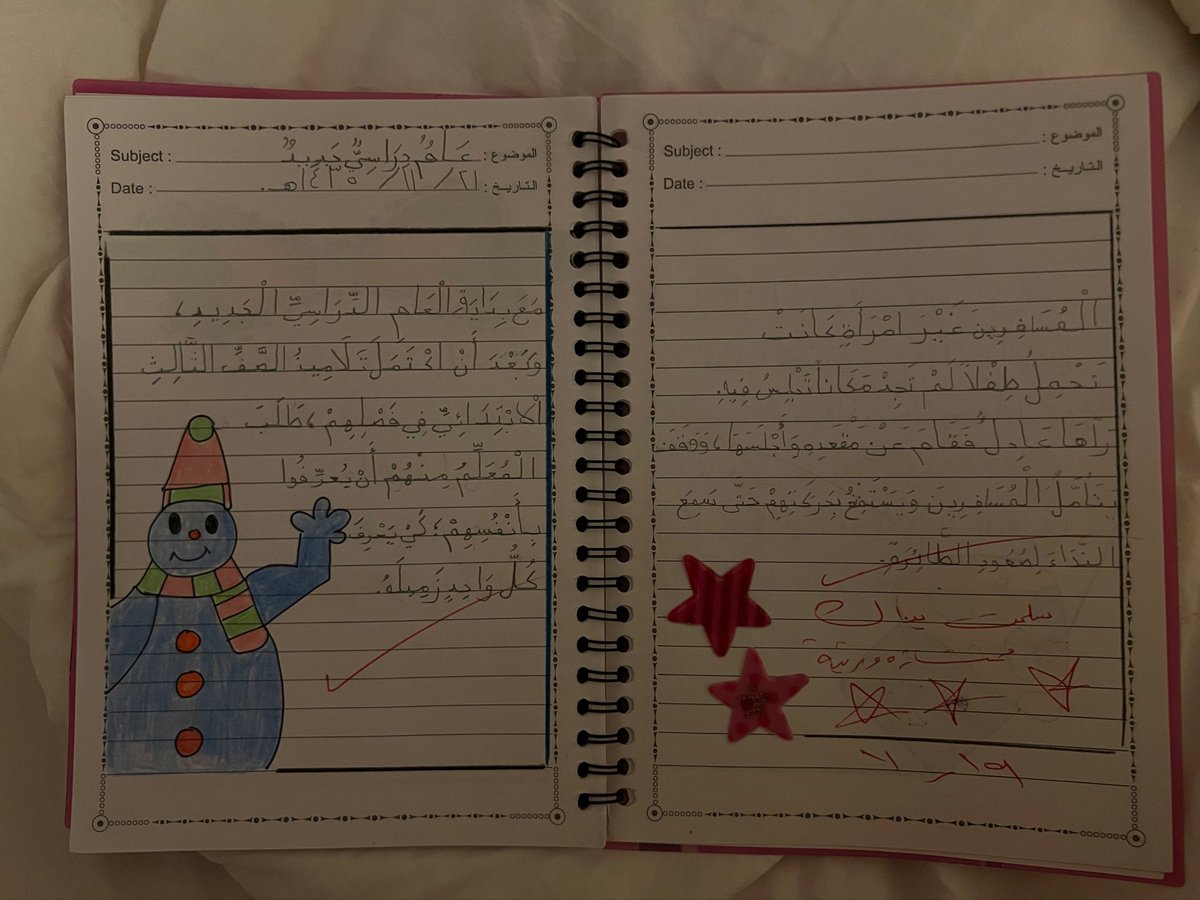 Subject : عَامٌ دِرَاسِيٌّ جَدِيدٌ الموضوع :
Date : ٢١ / ١١ / ١٤٣٥هـ. التاريخ :
مَعَ بِدَايَةِ الْعَامِ الدِّرَاسِيِّ الْجَدِيدِ،
وَبَعْدَ أَنْ اكْتَمَلَ تَلَامِيذُ الصَّفِّ الثَّالِثِ
الابْتِدَائِيِّ فِي فَصْلِهِمْ، طَلَبَ
الْمُعَلِّمُ مِنْهُمْ أَنْ يُعَرِّفُوا
بِأَنْفُسِهِمْ؛ كَيْ يَعْرِفَ
كُلُّ وَاحِدٍ زَمِيلَهُ.
Subject : الموضوع :
Date : التاريخ :
الْمُسَافِرِينَ غَيْرَ امْرَأَةٍ كَانَتْ
تَحْمِلُ طِفْلاً لَمْ تَجِدْ مَكَاناً تَجْلِسُ فِيهِ.
رَآهَا عَادِلٌ فَقَامَ عَنْ مَقْعَدِهِ وَأَجْلَسَهَا، وَوَقَفَ
يَتَأَمَّلُ الْمُسَافِرِينَ وَيَسْتَمْتِعُ بِحَرَكَتِهِمْ حَتَّى سَمِعَ
النِّدَاءَ لِصُعُودِ الطَّائِرَةِ.
سلمت يداك
ممتازه ومرتبة